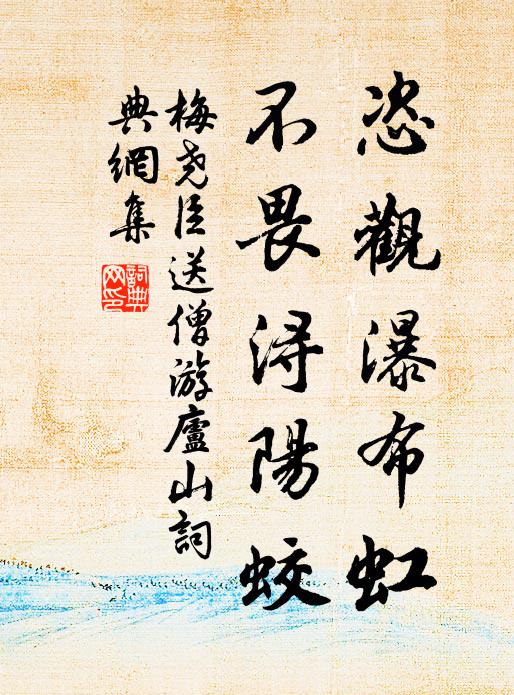 恣觀瀑布虹
不畏潯陽蛟
梅堯臣送僧游廬山詞
典網集
詞典
网印